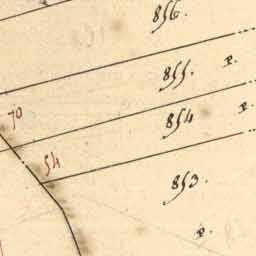 856.
855. P.
70 854 P.
54
853.
P.